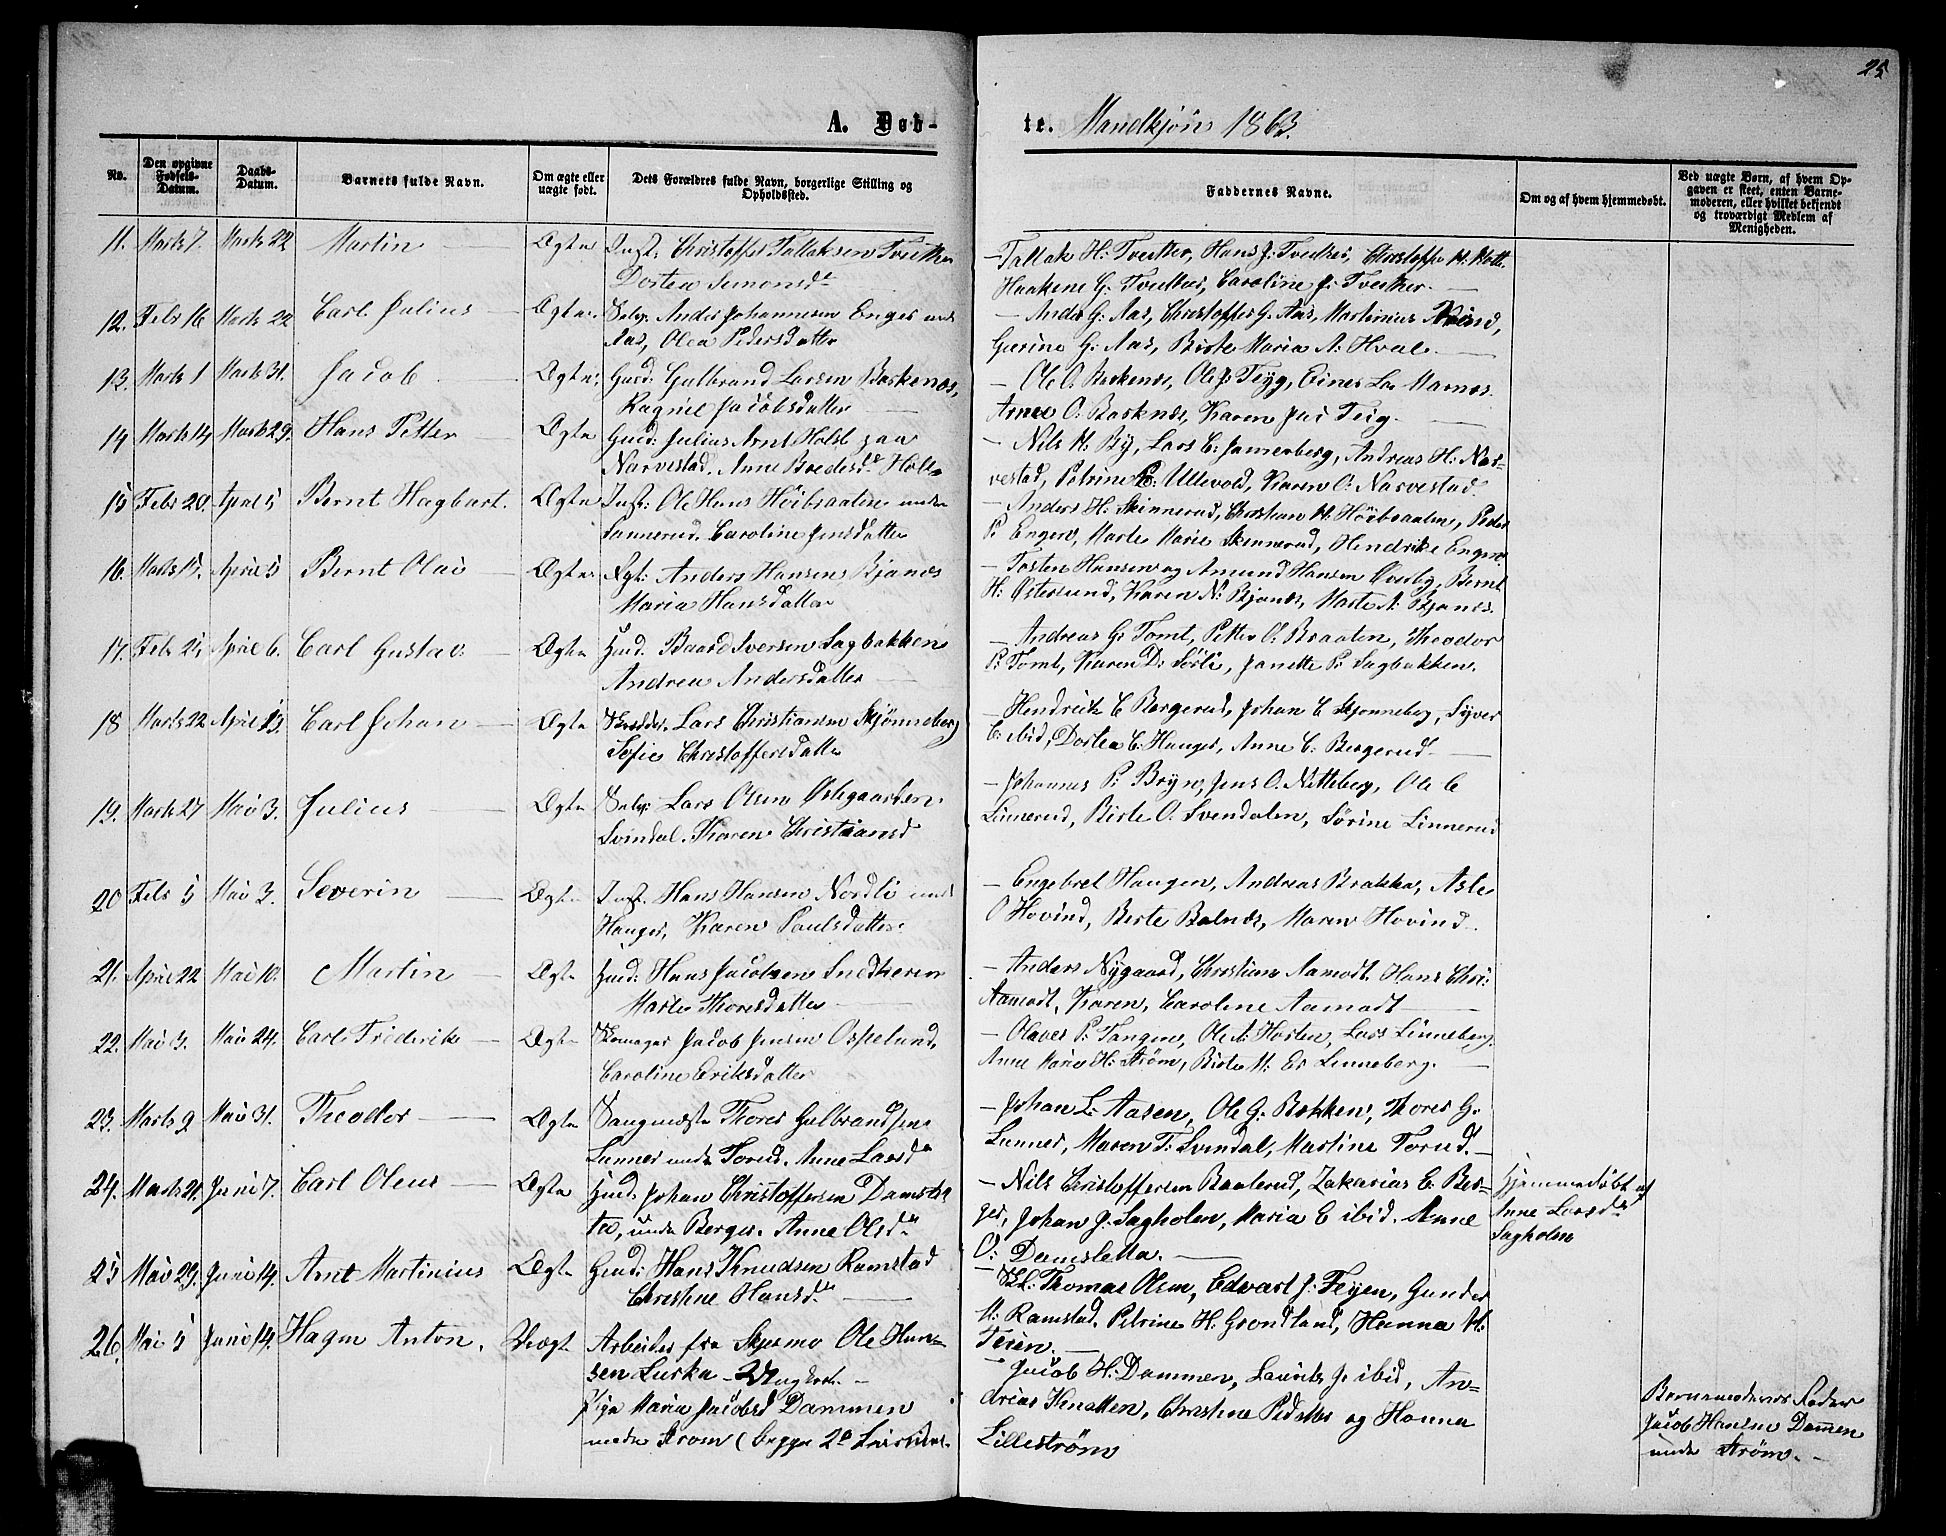 25
A. Døb-
te. Mandkjøn 1863.
No.
Den opgivne Fødsels-Datum.
Daabs-Datum.
Barnets fulde Navn.
Om ægte eller uægte født.
Dets Forældres fulde Navn, borgerlige Stilling og Opholdssted.
Faddernes Navne.
Om og af hvem hjemmedøbt.
Ved uægte Børn, af hvem Opgaven er skeet, enten Barnemoderen, eller hvilket bekjendt og troværdigt Medlem af Menigheden.
11. Marts 7. Marts 22 Martin Ægte Inst. Christoffer Tallaksen
Tallak H: Hans J:
12. Feb 16 Marts 22 Carl Julius Ægte Selv: Anders Johannesen Enger
Aas, Olea Pedersdatter
Anders G. Aas, Christoffer G. Aas, Martinius
Gurine G. Aas, Birte Maria A. Hval.
13. Marts 1 Marts 31. Jacob Ægte Gaard: Gulbrand Larsen
Ragnil Jacobsdatter
Ole O. Ole J: Einer
Anne O. Karen
14 Marts 14 Marts 29. Hans Petter Ægte Julius Arnt Holst paa
Narvestad. Anne
Nils H. By, Lars C: Andreas H: Nar-
vestad, Petrine Ullevold, Karen O. Narvestad.
15 Febr 20. April 5 Bernt Hagbart. Ægte Inst: Ole Hans Høibraaten under
Caroline Jensdatter
Anders H. Skinnerud, Christian H. Høibraaten, Peder
P. Engen, Marte Marie Skinnerud, Hendrikke Engen.
16. Marts 15. April 5 Bernt Olai Ægte Anders Hansen Bjanes
Maria Hansdatter
Tosten Hansen og Amund Hansen Bernt
H: Østerlund, Karen N: Bjanes, Marte A: Bjanes.
17. Feb 21 April 6. Carl Gustav. Ægte Huusd. Baard Iversen Sagbakken
Andrea Andersdatter
Andreas G. Tomt, Petter O. Braaten, Theodor
P. Tomt, Karen D: Sørli, Janette P: Sagbakken.
18 Marts 22 April 13. Carl Johan Ægte Lars Christiansen Skjønneberg
Sofie Christoffersdatter
Hendrik C Bergerud, Johan C Skjonneberg, Syver
C. ibid, Dortea C. Hanger, Anne C: Bergerud.
19. Marts 27 Mai 3. Julius Ægte Selv: Lars Olsen
Svindal. Karen Christiansd
Johannes P. Bryn, Jens O. Nitteberg, Ole C
Linnerud, Birte O. Svendalen, Sørine Linnerud
20 Feb 5 Mai 3. Severin Ægte Inst. Hans Hansen Nordli
Hanger, Karen Paulsdatter.
Engebret Haugen, Andreas Brakka, Asle
O Hovind, Berte Balnæs, Maren Hovind.
21. April 22 Mai 10. Martin Ægte Huusd: Hans Jacobsen
Marte Thoresdatter
Anders Nygaard, Christian Aamodt, Hans Chri:
Aamodt, Karen, Caroline Aamodt
22. Mai 3. Mai 24. Carl Frederik Ægte Skomager Jacob Jensen Ospelund,
Caroline Eriksdatter
Olaves P. Tangen, Ole A: Lars Linneberg.
Anne Marie H: Strøm, Birte M: Linneberg.
23. Marts 9 Mai 31. Theodor Ægte Thores Gulbrandsen
Lunner under Torud. Anne Larsd
Johan L: Aasen, Ole G. Bekken, Thores G.
Lunner, Maren T. Svendal, Martine Torud.
24. Marts 21. Juni 7. Carl Oleus Ægte Huusd. Johan Christoffersen Damslet
ta, under Berger. Anne Olsd
Nils Christoffersen Baalerud, Zakarias E. Ber-
ger, Johan J. Sagholen, Maria E ibid. Anne
O: Damsletta.
Hjemmedøbt af
Anne Larsd
Sagholen
25 Mai 29. Juni 14. Arnt Martinius Ægte Huusd: Hans Knudsen Ramstad
Christine Hansd
Thomas Olsen, Edvart J. Teyen, Gunder
H. Ramstad, Petrine H. Grondland, Hanna H:
Teien.
26. Mai 5 Juni 14. Hagen Anton. Uægt Arbeider fra Ole Han-
sen Luska Ungkarl
Pige Maria Jacobsd Dammen
under Strøm (begge 2
Jacob H: Dammen, Laurits J ibid, An-
dreas Knatten, Christine og Hanna
Lillestrøm
Barnemoderens Fader
Jacob Hansen Dammen
under Strøm.